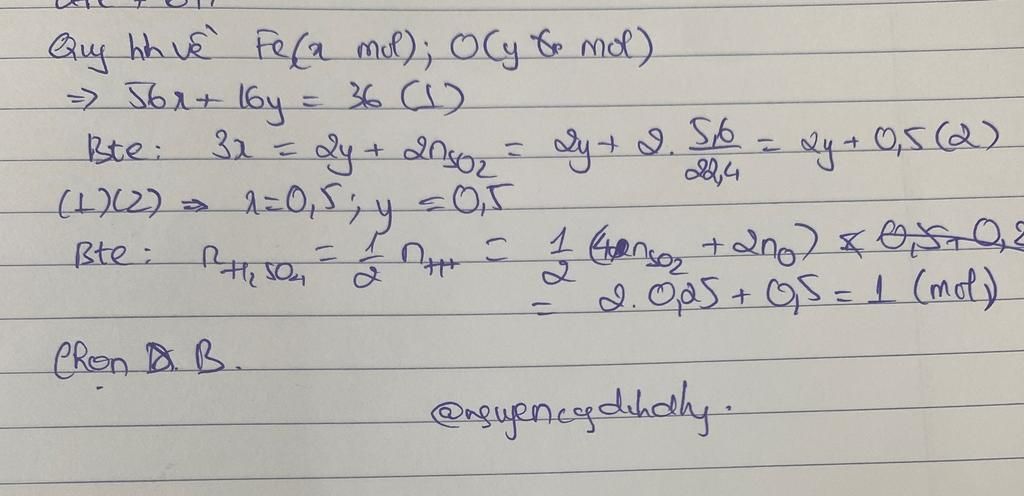 Quy hh về Fe(x mol); O(y mol)
=> 56x + 16y = 36 (1)
Bte: 3x = 2y + 2nSO2 = 2y + 2. 5,6/22,4 = 2y + 0,5 (2)
(1)(2) => x=0,5; y = 0,5
Bte: nH2SO4 = 1/2 nH+ = 1/2 (4nSO2 + 2nO)
= 2. 0,25 + 0,5 = 1 (mol)
Chọn B.